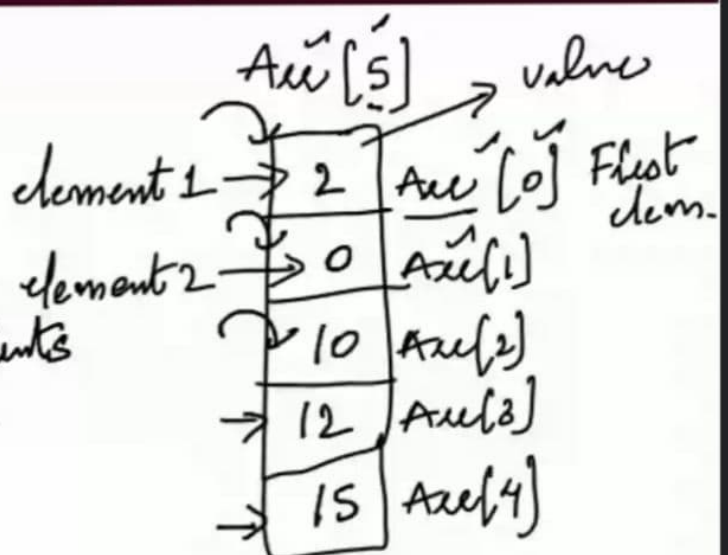 Arr [5]
value
element 1 → 2 Arr [0] First
elem.
element 2 → 0 Arr[1]
10 Arr[2]
12 Arr[3]
15 Arr[4]